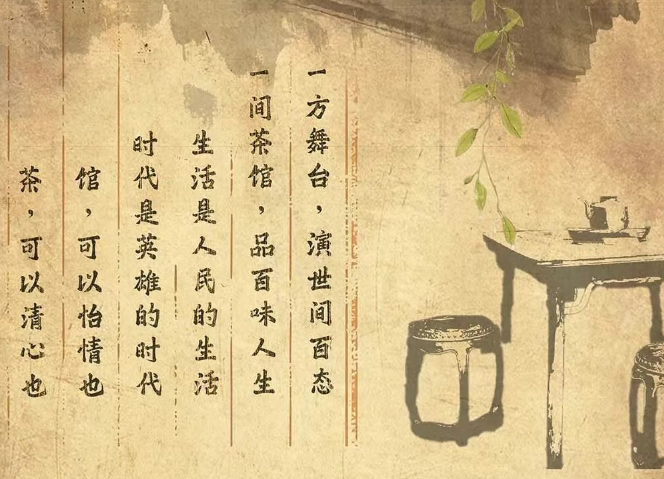 一方舞台，演世间百态
一间茶馆，品百味人生
生活是人民的生活
时代是英雄的时代
馆，可以怡情也
茶，可以清心也